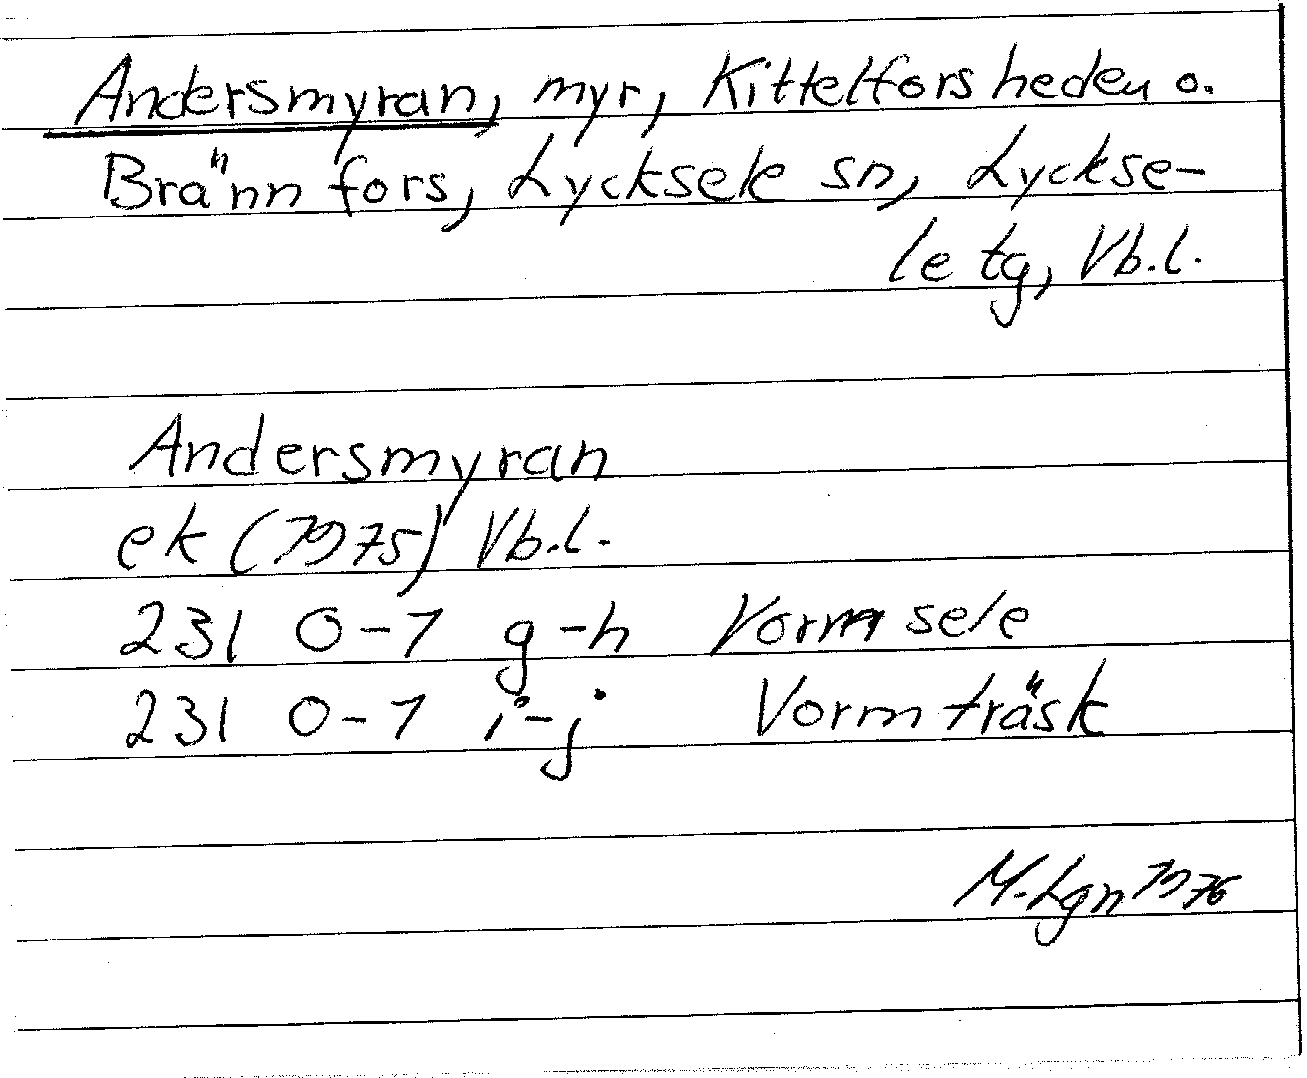 Andersmyran, myr, Kittelforsheden o.
Brännfors, Lycksele sn, Lyckse-
le tg, Vb.l.
Andersmyran
ek (1975) Vb.l.
231 0-1 g-h Vormsele
231 0-1 i-j Vormträsk
M. Lgn 1976